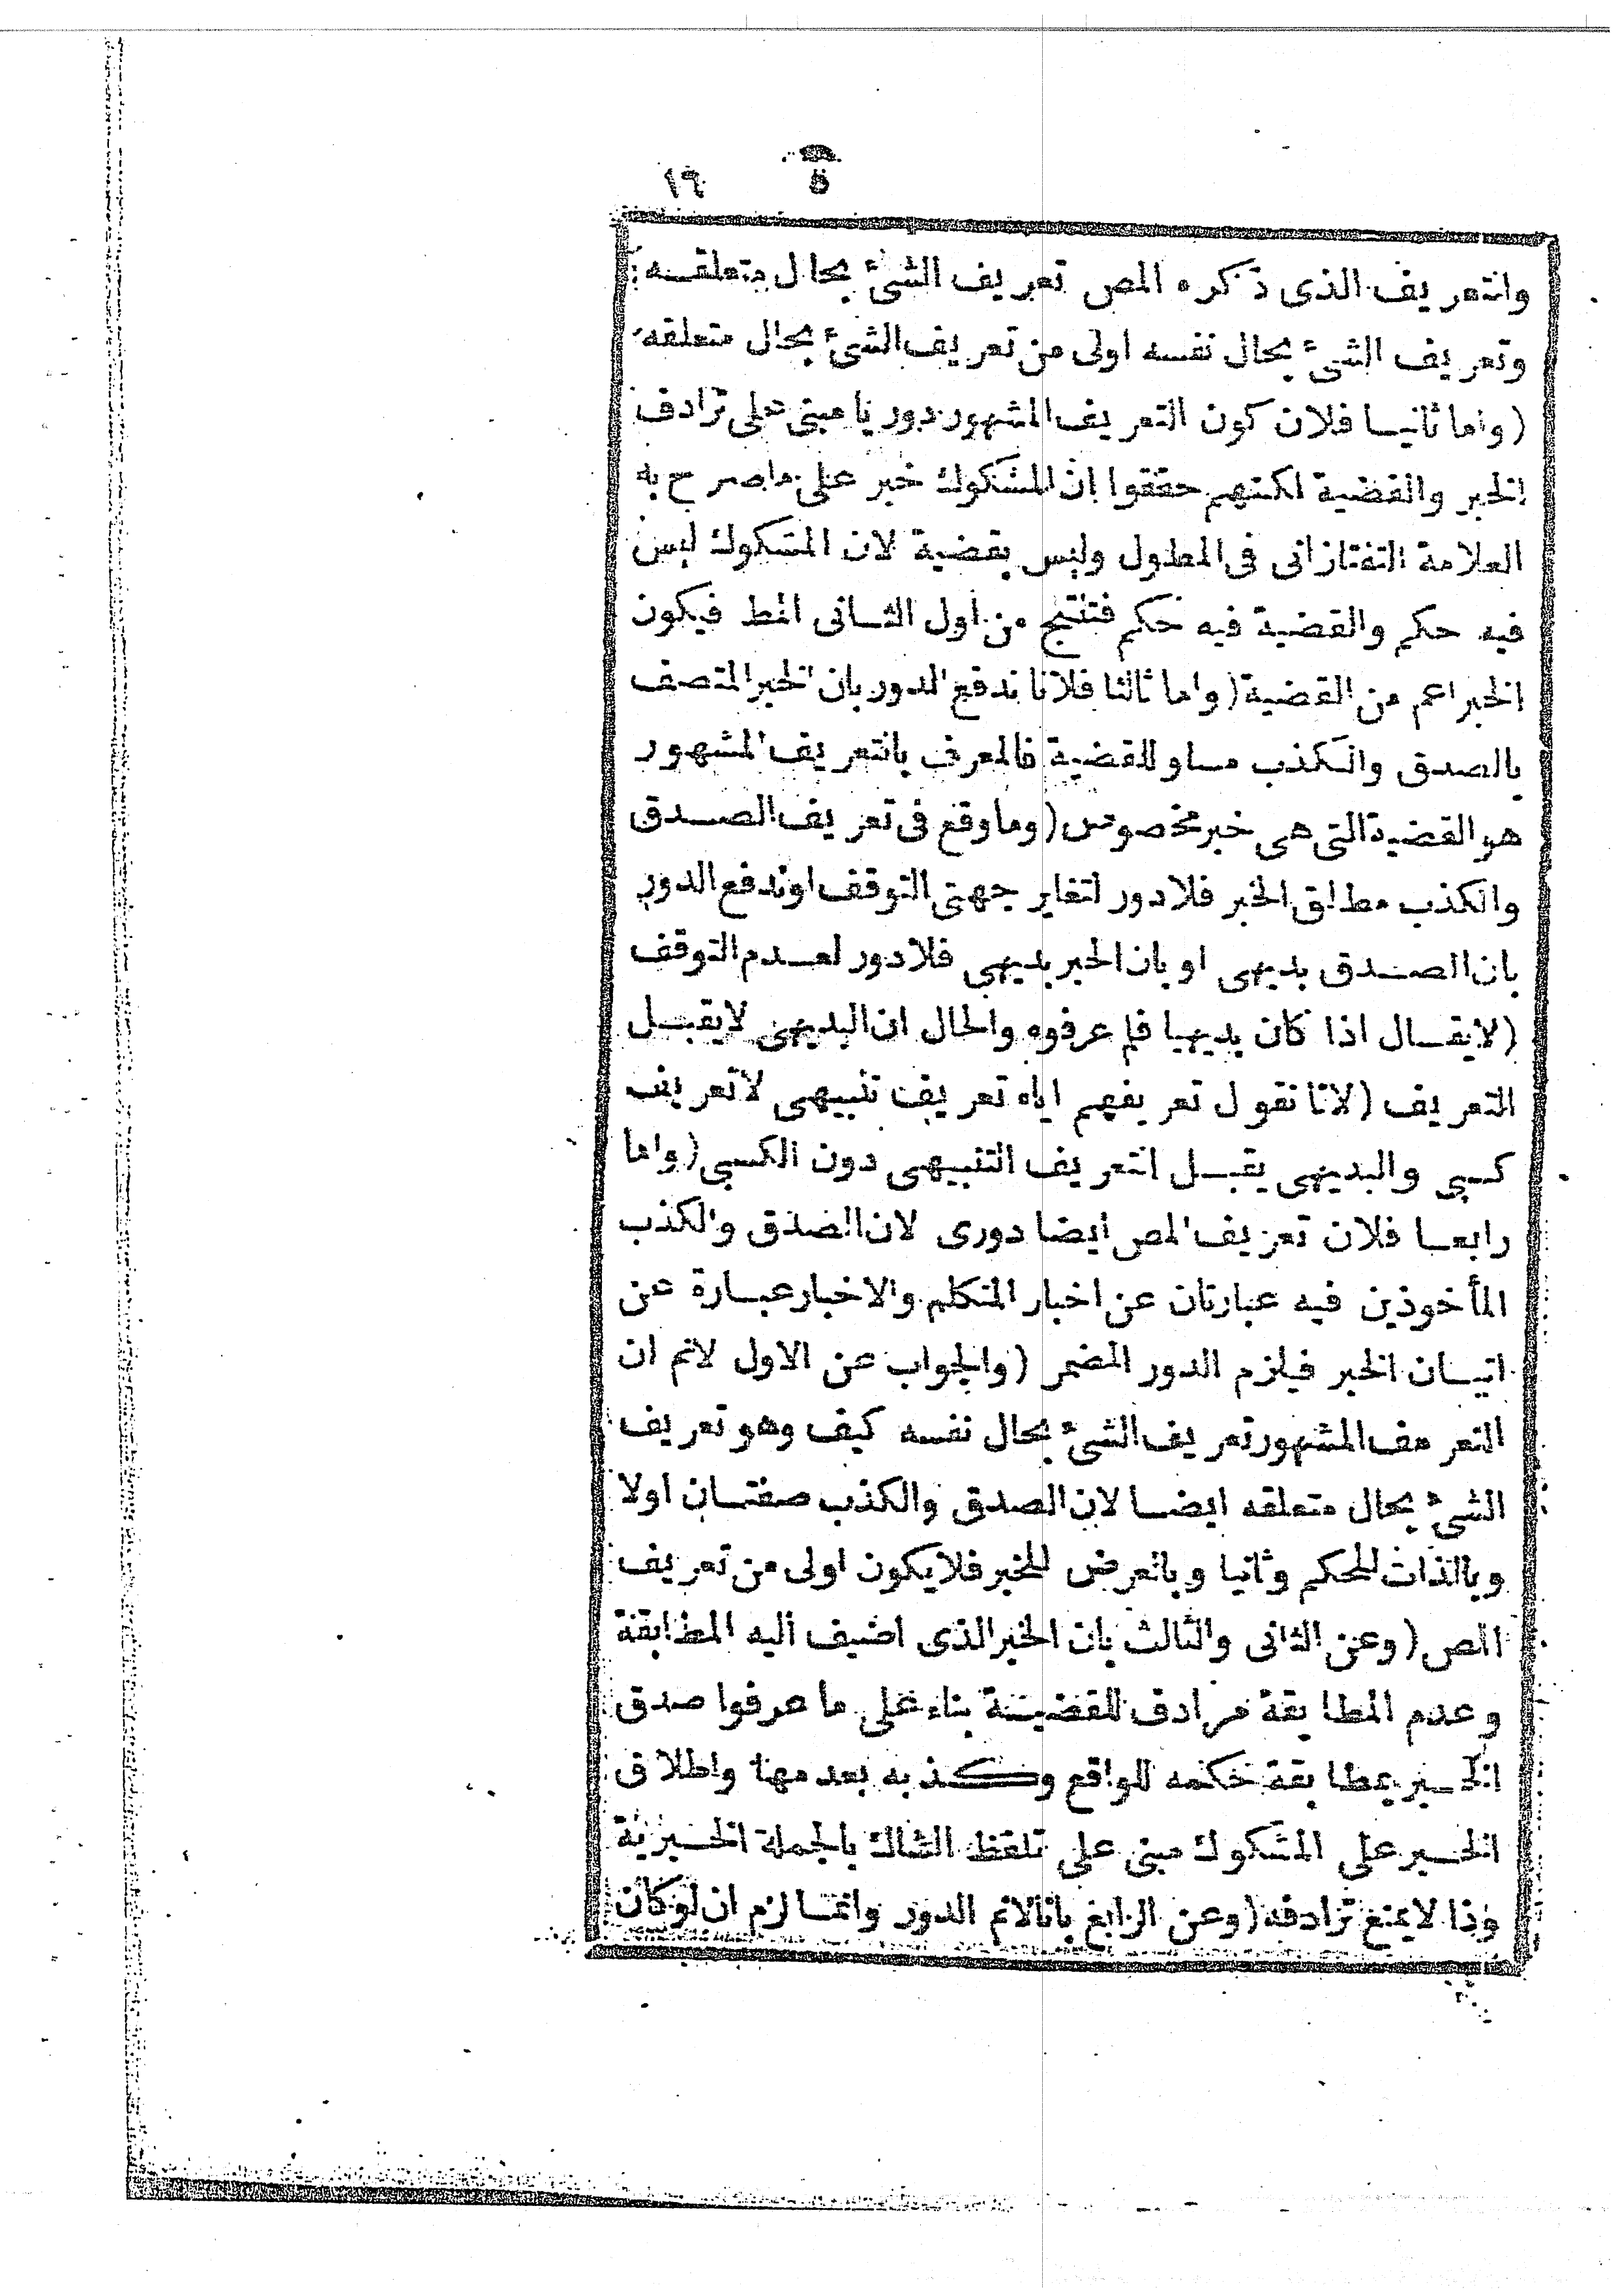 ٥ ١٦
والتعريف الذى ذكره المص تعريف الشئ بحال متعلقه
وتعريف الشئ بحال نفسه اولى من تعريف الشئ بحال متعلقه
(واما ثانيا فلان كون التعريف المشهور دوريا مبنى على ترادف
الخبر والقضية لكنهم حققوا ان المشكوك خبر على ماصرح به
العلامة التفتازانى فى المطول وليس بقضية لان المشكوك ليس
فيه حكم والقضية فيه حكم فتنتج من اول الثانى المط فيكون
الخبر اعم من القضية (واما ثالثا فلانا ندفع الدور بان الخبر المتصف
بالصدق والكذب مساو للقضية فالمعرف بالتعريف المشهور
هو القضية التى هى خبر مخصوص (وما وقع فى تعريف الصدق
والكذب مطلق الخبر فلا دور لتغاير جهتى التوقف او ندفع الدور
بان الصدق بديهى او بان الخبر بديهى فلا دور لعدم التوقف
(لا يقال اذا كان بديهيا فلم عرفوه والحال ان البديهى لا يقبل
التعريف (لانا نقول تعريفهم اياه تعريف تنبيهى لا تعريف
كسبى والبديهى يقبل التعريف التنبيهى دون الكسبى (واما
رابعا فلان تعريف المص ايضا دورى لان الصدق والكذب
المأخوذين فيه عبارتان عن اخبار المتكلم والاخبار عبارة عن
اتيان الخبر فيلزم الدور المضمر (والجواب عن الاول لانم ان
التعريف المشهور تعريف الشئ بحال نفسه كيف وهو تعريف
الشئ بحال متعلقه ايضا لان الصدق والكذب صفتان اولا
وبالذات للحكم وثانيا وبالعرض للخبر فلا يكون اولى من تعريف
المص (وعن الثانى والثالث بان الخبر الذى اضيف اليه المطابقة
وعدم المطابقة مرادف للقضية بناء على ما عرفوا صدق
الخبر بمطابقة حكمه للواقع وكذبه بعدمها واطلاق
الخبر على المشكوك مبنى على تلفظ الشاك بالجملة الخبرية
وذا لا يمنع ترادفه (وعن الرابع بانا لانم الدور وانما لزم ان لو كان